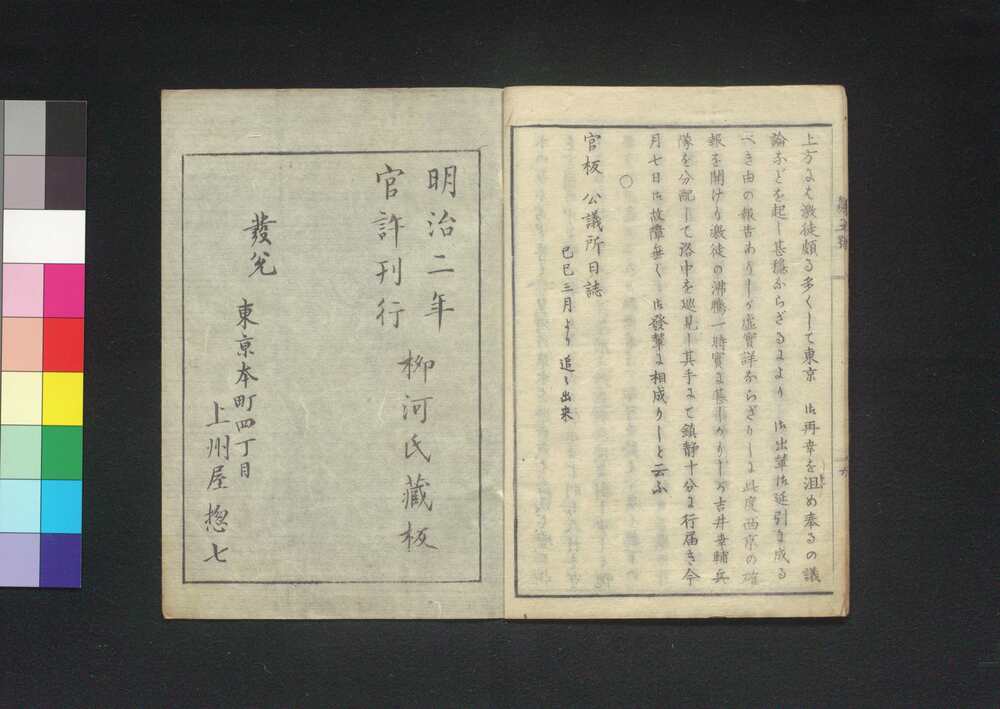 上方にも激徒頗る多くして東京　御再幸を沮め奉るの議
論などを起し甚穏からざるにより　御出輦御延引に成る
べき由の報告ありしが虚實詳ならざりしに此度西京の確
報を聞けり激徒の沸騰一時實に甚しかりしが吉井幸輔兵
隊を分配して洛中を巡見し其手にて鎮静十分に行届き今
月七日御故障無く　御發輦に相成りしと云ふ
○
官板 公議所日誌
己巳三月より追々出来
明治二年
官許刊行
柳河氏藏板
發兌
東京本町四丁目
上州屋惣七